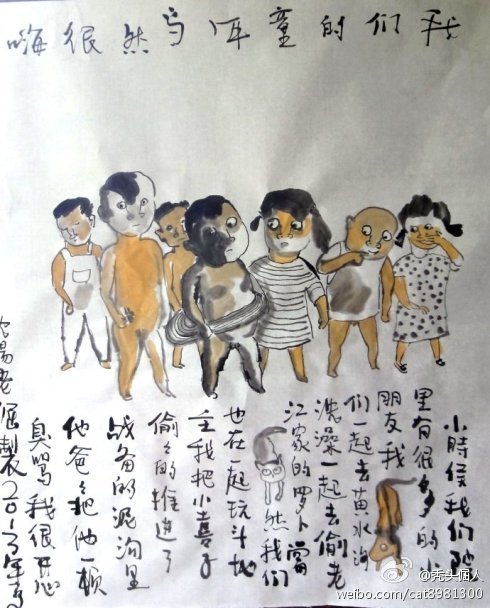 我们的童年然很嗨
小時侯我们院
里有很多的小
朋友我
们一起去黄水沟
洗澡一起去偷老
江家的罗卜當
然我们
也在一起玩斗地
主我把小喜子
偷々的推进了
战备的泥沟里
他爸々把他一顿
臭骂我很开心
老倔製
@秃头倔人
weibo.com/cat8981300